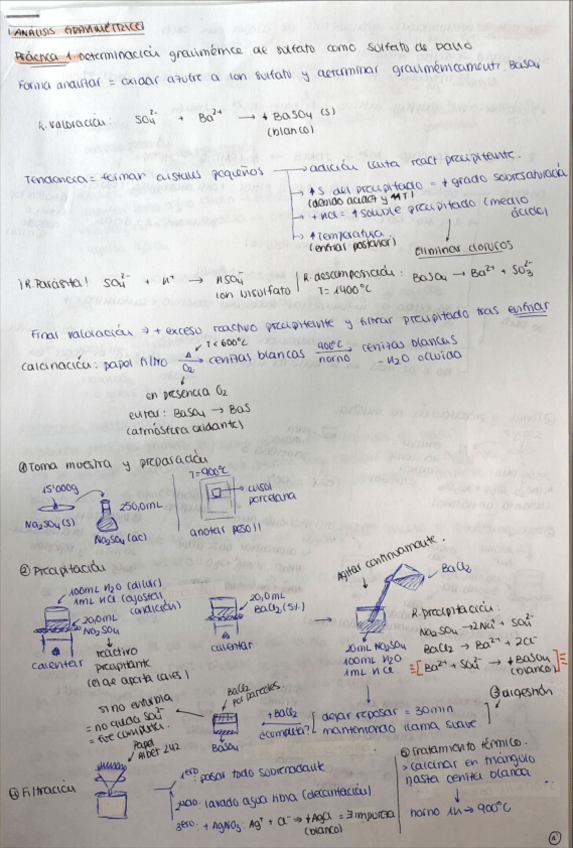 ANÁLISIS GRAVIMÉTRICO
Práctica 1 determinación gravimétrica de sulfato como sulfato de bario
Forma analitar = oxidar azufre a ion sulfato y determinar gravimétricamente BaSO4
R. valoración: SO4²⁻ + Ba²⁺ → ↓ BaSO4 (s)
(blanco)
Tendencia = formar cristales pequeños → adición lenta react precipitante.
→ ↑S del precipitado = ↓ grado sobresaturación
(dando acidez y ↑↑T)
→ + HCl = ↑ soluble precipitado (medio ácido)
→ ↑ Temperatura
(enfriar posterior)
eliminar cloruros
¡R. Parásita! SO4²⁻ + H⁺ → HSO4⁻
ion bisulfato
R. descomposición: BaSO4 → Ba²⁺ + SO3²⁻
T = 1400°C
Final valoración → + exceso reactivo precipitante y filtrar precipitado tras enfriar
T < 600°C
calcinación: papel filtro Δ O2 → cenizas blancas 900°C horno → cenizas blancas
- H2O ocluida
en presencia O2
evitar: BaSO4 → BaS
(atmósfera oxidante)
① Toma muestra y preparación
15'000g
Na2SO4 (s)
250,0mL
Na2SO4 (ac)
T=900°C
crisol
porcelana
anotar peso!!
② Precipitación
100mL H2O (diluir)
1mL HCl (ajustar)
(condición)
20,0mL
Na2SO4
calentar
reactivo
precipitante
20,0mL
BaCl2 (5%)
calentar
Agitar continuamente.
BaCl2
20mL Na2SO4
100mL H2O
1mL HCl
R. precipitación:
Na2SO4 → 2Na⁺ + SO4²⁻
BaCl2 → Ba²⁺ + 2Cl⁻
[Ba²⁺ + SO4²⁻ → ↓ BaSO4]
(blanco)
③ digestión
dejar reposar = 30min
manteniendo llama suave.
+BaCl2
¿completa?
BaCl2
por paredes
BaSO4
si no enturbia
= no queda SO4²⁻
= fue completa.
④ Filtración
Papel
Albet 242
1ero: pasar todo sobrenadante
2ndo: lavado agua tibia (decantación)
3ero: + AgNO3: Ag⁺ + Cl⁻ → ↓AgCl = ∃ impureza
(blanco)
⑤ Tratamiento térmico.
> calcinar en triángulo
hasta ceniza blanca
horno 1h → 900°C